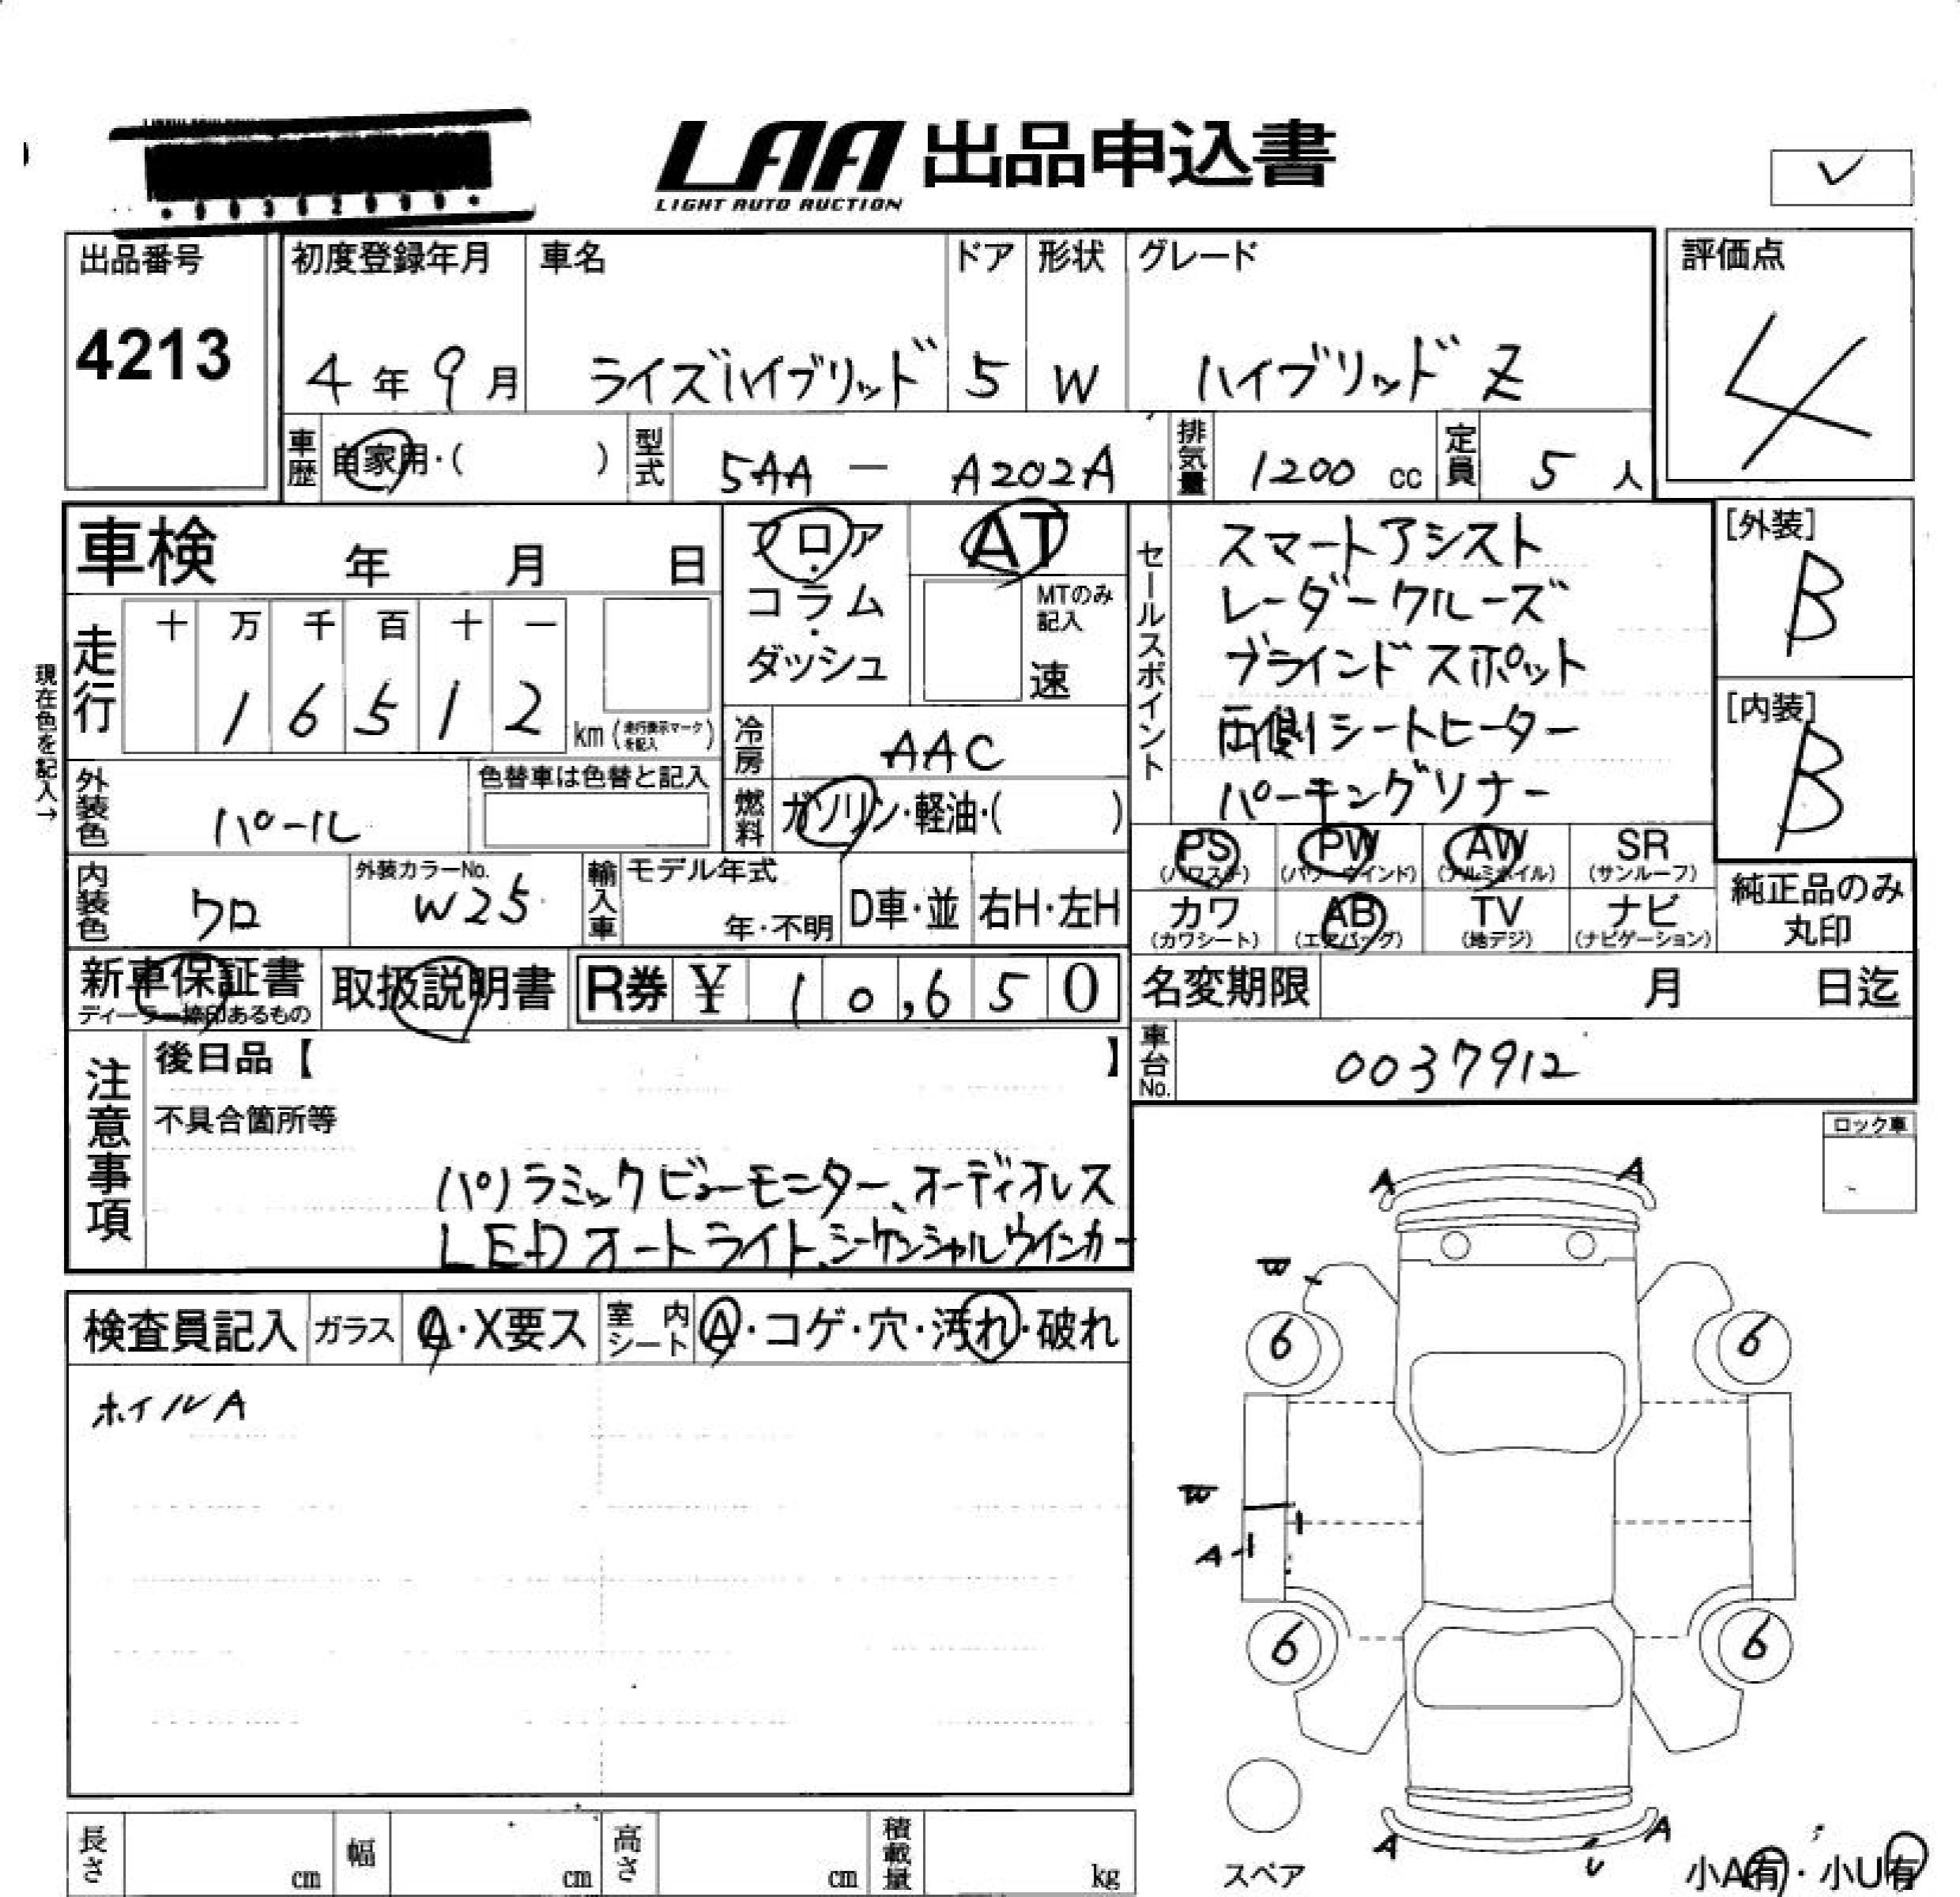 LAA 出品申込書
LIGHT AUTO AUCTION
出品番号
4213
初度登録年月
4年9月
車名
ライズハイブリッド
ドア
5
形状
W
グレード
ハイブリッド Z
評価点
4
車歴
自家用・( )
型式
5AA - A202A
排気量
1200 cc
定員
5 人
車検 年 月 日
フロア・コラム・ダッシュ
AT
MTのみ記入
速
セールスポイント
スマートアシスト
レーダークルーズ
ブラインドスポット
両側シートヒーター
パーキングソナー
[外装]
B
[内装]
B
現在色を記入→
走行
十 万 千 百 十 一
1 6 5 1 2
km (走行表示マークを記入)
冷房
AAC
外装色
パール
色替車は色替と記入
燃料
ガソリン・軽油・( )
PS
(パワステ)
PW
(パワーウインド)
AW
(アルミホイル)
SR
(サンルーフ)
内装色
クロ
外装カラーNo.
W25
輸入車
モデル年式
年・不明
D車・並
右H・左H
カワ
(カワシート)
AB
(エアバッグ)
TV
(地デジ)
ナビ
(ナビゲーション)
純正品のみ
丸印
新車保証書
ディーラー捺印あるもの
取扱説明書
R券 ¥ 10,650
名変期限 月 日迄
車台No.
0037912
注意事項
後日品【 】
不具合箇所等
パノラミックビューモニター、オーディオレス
LEDオートライト、シーケンシャルウインカー
ロック車
検査員記入
ガラス
A・X要ス
室内シート
A・コゲ・穴・汚れ・破れ
ホイルA
A A
W
6 6
W
A
6 6
A U A
スペア
小A有・小U有
長さ cm
幅 cm
高さ cm
積載量 kg